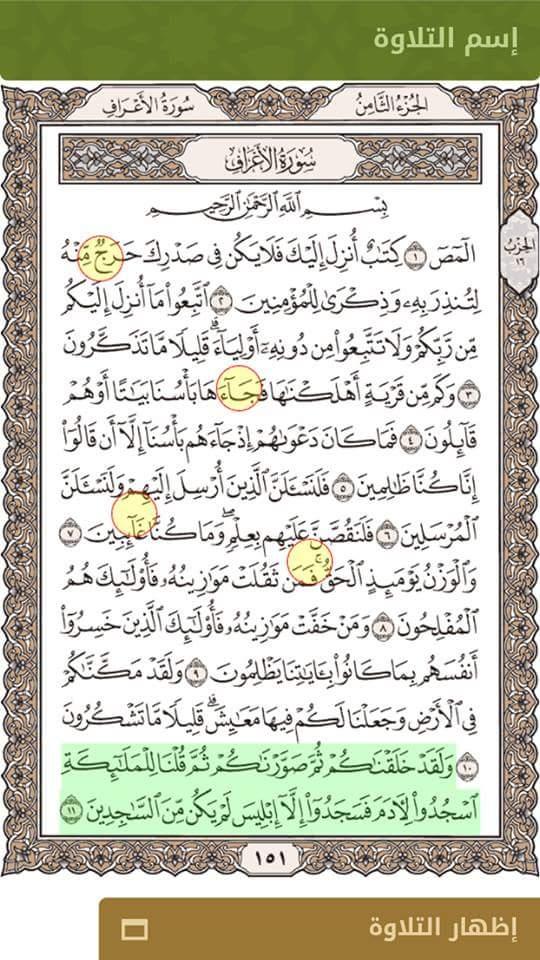 إسم التلاوة
الجزء الثامن
سورة الأعراف
سُورَةُ الأَعْرَافِ
بِسْمِ ٱللَّهِ ٱلرَّحْمَٰنِ ٱلرَّحِيمِ
الٓمٓصٓ ١ كِتَٰبٌ أُنزِلَ إِلَيْكَ فَلَا يَكُن فِى صَدْرِكَ حَرَجٌ مِّنْهُ
الحزب
١٦
لِتُنذِرَ بِهِۦ وَذِكْرَىٰ لِلْمُؤْمِنِينَ ٢ ٱتَّبِعُوا۟ مَآ أُنزِلَ إِلَيْكُم
مِّن رَّبِّكُمْ وَلَا تَتَّبِعُوا۟ مِن دُونِهِۦٓ أَوْلِيَآءَ ۗ قَلِيلًا مَّا تَذَكَّرُونَ
٣ وَكَم مِّن قَرْيَةٍ أَهْلَكْنَٰهَا فَجَآءَهَا بَأْسُنَا بَيَٰتًا أَوْ هُمْ
قَآئِلُونَ ٤ فَمَا كَانَ دَعْوَىٰهُمْ إِذْ جَآءَهُم بَأْسُنَآ إِلَّآ أَن قَالُوٓا۟
إِنَّا كُنَّا ظَٰلِمِينَ ٥ فَلَنَسْـَٔلَنَّ ٱلَّذِينَ أُرْسِلَ إِلَيْهِمْ وَلَنَسْـَٔلَنَّ
ٱلْمُرْسَلِينَ ٦ فَلَنَقُصَّنَّ عَلَيْهِم بِعِلْمٍ ۖ وَمَا كُنَّا غَآئِبِينَ ٧
وَٱلْوَزْنُ يَوْمَئِذٍ ٱلْحَقُّ ۚ فَمَن ثَقُلَتْ مَوَٰزِينُهُۥ فَأُو۟لَٰٓئِكَ هُمُ
ٱلْمُفْلِحُونَ ٨ وَمَنْ خَفَّتْ مَوَٰزِينُهُۥ فَأُو۟لَٰٓئِكَ ٱلَّذِينَ خَسِرُوٓا۟
أَنفُسَهُم بِمَا كَانُوا۟ بِـَٔايَٰتِنَا يَظْلِمُونَ ٩ وَلَقَدْ مَكَّنَّٰكُمْ
فِى ٱلْأَرْضِ وَجَعَلْنَا لَكُمْ فِيهَا مَعَٰيِشَ ۗ قَلِيلًا مَّا تَشْكُرُونَ
١٠ وَلَقَدْ خَلَقْنَٰكُمْ ثُمَّ صَوَّرْنَٰكُمْ ثُمَّ قُلْنَا لِلْمَلَٰٓئِكَةِ
ٱسْجُدُوا۟ لِـَٔادَمَ فَسَجَدُوٓا۟ إِلَّآ إِبْلِيسَ لَمْ يَكُن مِّنَ ٱلسَّٰجِدِينَ ١١
١٥١
إظهار التلاوة